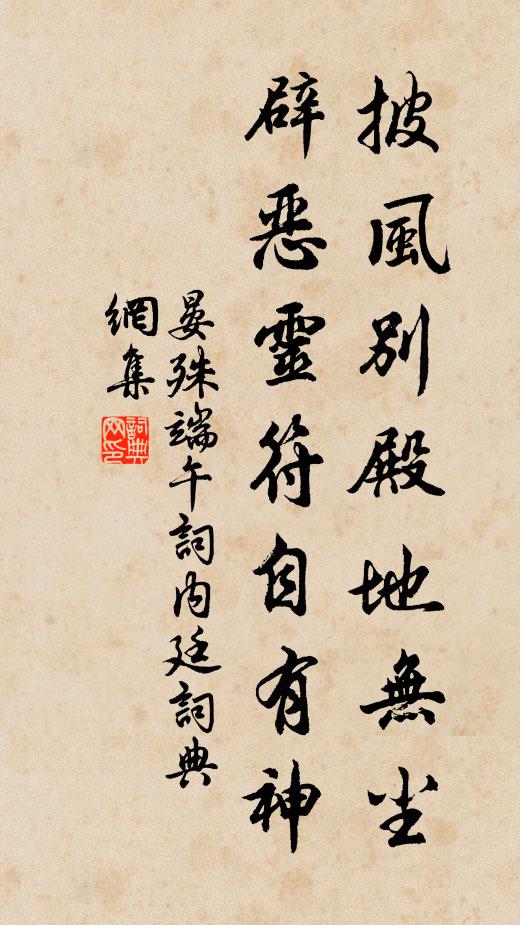 披風別殿地無尘
辟惡靈符自有神
晏殊端午詞内廷詞典
網集
詞典
网印